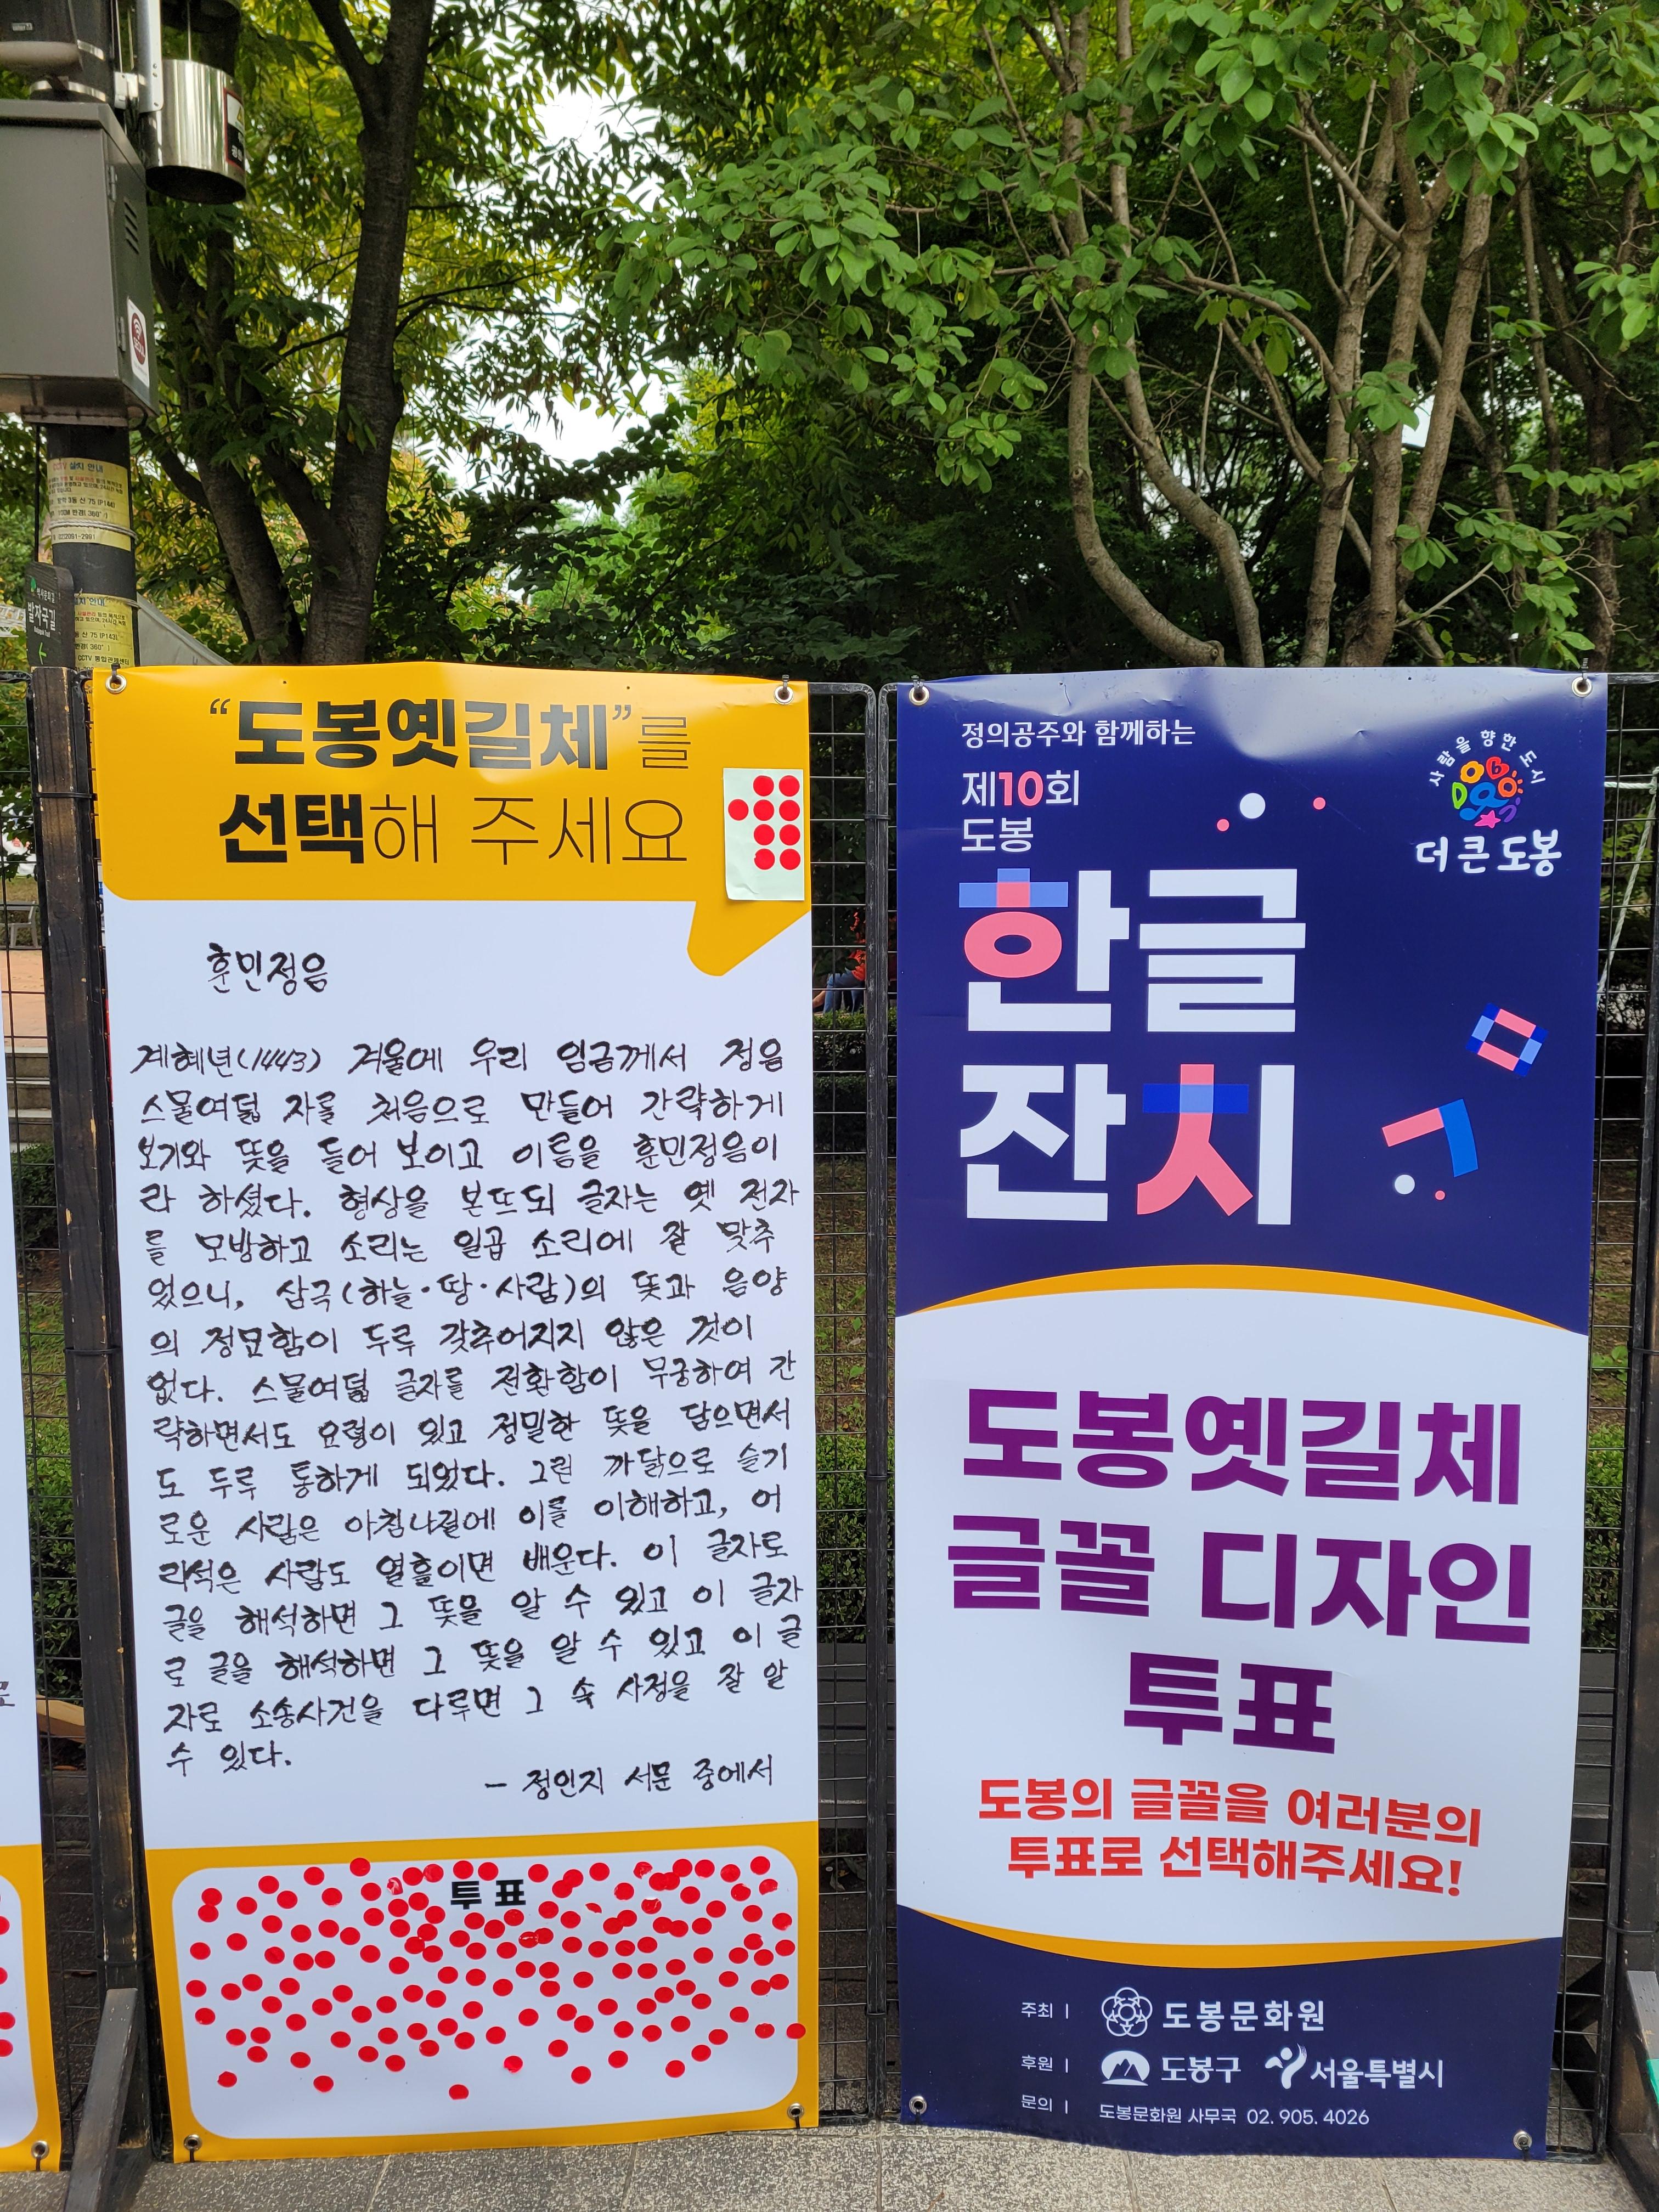 CCTV 설치 안내
발자국길
"도봉옛길체"를
선택해 주세요
훈민정음
계해년(1443) 겨울에 우리 임금께서 정음
스물여덟 자를 처음으로 만들어 간략하게
보기와 뜻을 들어 보이고 이름을 훈민정음이
라 하셨다. 형상을 본뜨되 글자는 옛 전자
를 모방하고 소리는 일곱 소리에 잘 맞추
었으니, 삼극(하늘·땅·사람)의 뜻과 음양
의 정묘함이 두루 갖추어지지 않은 것이
없다. 스물여덟 글자를 전환함이 무궁하여 간
략하면서도 요령이 있고 정밀한 뜻을 담으면서
도 두루 통하게 되었다. 그런 까닭으로 슬기
로운 사람은 아침나절에 이를 이해하고, 어
리석은 사람도 열흘이면 배운다. 이 글자로
글을 해석하면 그 뜻을 알 수 있고 이 글자
로 글을 해석하면 그 뜻을 알 수 있고 이 글
자로 소송사건을 다루면 그 속 사정을 잘 알
수 있다.
- 정인지 서문 중에서
투표
정의공주와 함께하는
제10회
도봉
한글
잔치
사람을 향한 도시
더 큰 도봉
도봉옛길체
글꼴 디자인
투표
도봉의 글꼴을 여러분의
투표로 선택해주세요!
주최 | 도봉문화원
후원 | 도봉구 서울특별시
문의 | 도봉문화원 사무국 02. 905. 4026